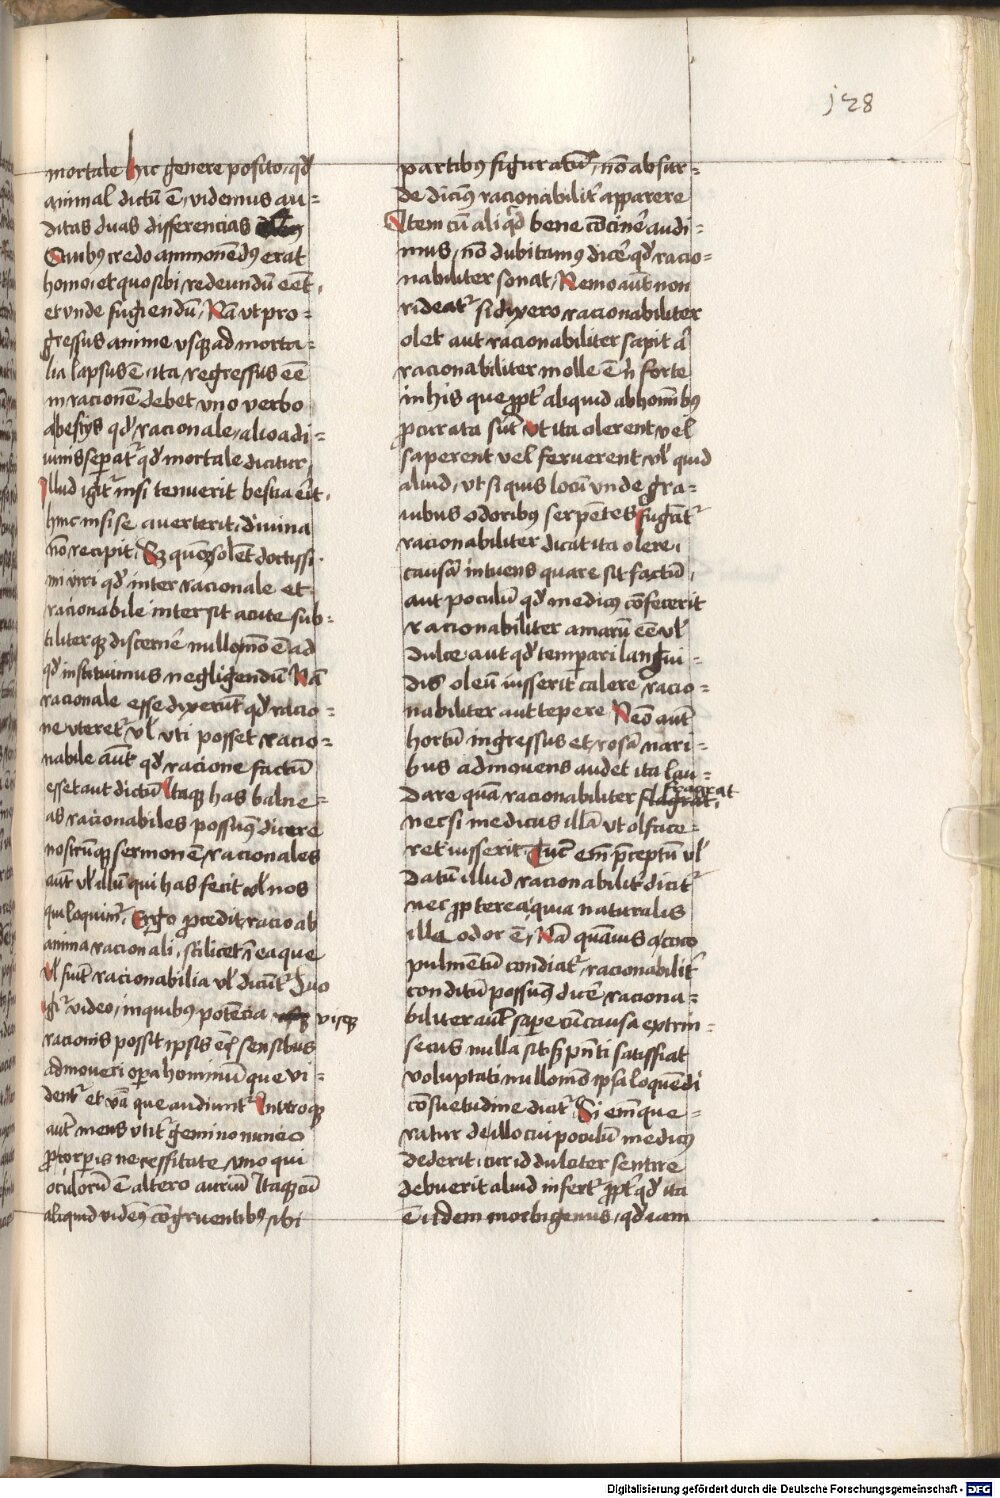 128
mortale hic genere posito, qd'
animal dictū ē, videmus au-
ditas duas differencias
Quibꝰ credo ammonendꝰ erat
homo, et quo sibi redeundū eēt,
et vnde fugiendū, Nā vt pro-
gressus anime vsqꝫ ad morta-
lia lapsus ē, ita regressus eē
in racionē debet vno verbo
a bestys qd' racionale, alio a di-
uinis seperat᷑ qd' mortale dicitur,
Illud igit᷑ nisi tenuerit bestia erit,
hinc nisi se auerterit, diuina
nō recipit, Sꝫ quoqꝫ solēt doctissi-
mi viri qd' inter racionale et
racionabile intersit acute sub-
tiliterqꝫ discernē nullomō ē ad
qd' instituimus negligendū Nā
racionale esse dixerūt qd' racio-
ne vteret᷑ vl' vti posset racio-
nabile aūt qd' racione factū
esset aut dictū Itaqꝫ has balne-
as racionabiles possumꝰ dicere
nostrūqꝫ sermonē racionales
aūt vl' illū qui has fecit vl' nos
qui loquim᷑, Ergo ꝓcedit racio ab
anima racionali, scilicet ī ea que
vl' fiūt racionabilia vl' dicūt᷑ Duo
igr̄ video, in quibꝰ potēcia visqꝫ
racionis possit ipsis eciā sensibus
admoueri opera hominū que vi-
dent᷑ et vba que audiunt᷑ In vtroqꝫ
aut' mens vtit᷑ gemino nuncio
ꝓ corporis necessitate vno qui
oculorū ē altero auriū Itaqꝫ cū
aliquid videmꝰ congruentibꝰ sibi
partibꝰ figuratū, nō absur-
de dicimꝰ racionabilit᷑ apparere
Item cū aliqd' bene cōcinē audi-
mus, nō dubitamꝰ dicē qd' racio-
nabiliter sonat, Nemo aūt non
rideat᷑ si dixero racionabiliter
olet aut racionabiliter sapit aūt
racionabiliter molle ē nisi forte
in his que ꝓpt' aliquid ab hominibꝰ
ꝓcurata sūt vt ita olerent vel
saperent vel feruerent, vl' quid
aliud, vt si quis locū vnde gra-
uibus odoribꝰ serpētes fugāt᷑
racionabiliter dicat ita olere,
causā intuens quare sit factū,
aut poculū qd' medicꝰ cōfecerit
racionabiliter amarū eē vl'
dulce aut qd' temperari langui-
dis oleū iusserit calere racio-
nabiliter aut tepere Nemo aūt
hortū ingressus et rosā nari-
bus admouens audet ita lau-
dare quā racionabiliter flagrat, fragrat
nec si medicus illā vt olface-
ret iusserit Tūc em̄ p̄ceptū vl'
datū illud racionabilit᷑ dicit᷑
nec ꝓpterea quia naturalis
ille odor ē, Nā quāuis a coco
pulmētū condiat᷑, racionabilit᷑
conditū possumꝰ dicē raciona-
biliter aūt sapere cū causa extrin-
secus nulla sit sꝫ p̄nti satisfiat
voluptati nullomō ipsa loquēdi
cōsuetudine dicit᷑, Si em̄ que-
ratur de illo cui poculū medicꝰ
dederit, cur id dulciter sentire
debuerit aliud infert᷑ ꝓpt' qd' ita
ē idem morbi genus, qd' iam
Digitalisierung gefördert durch die Deutsche Forschungsgemeinschaft - DFG